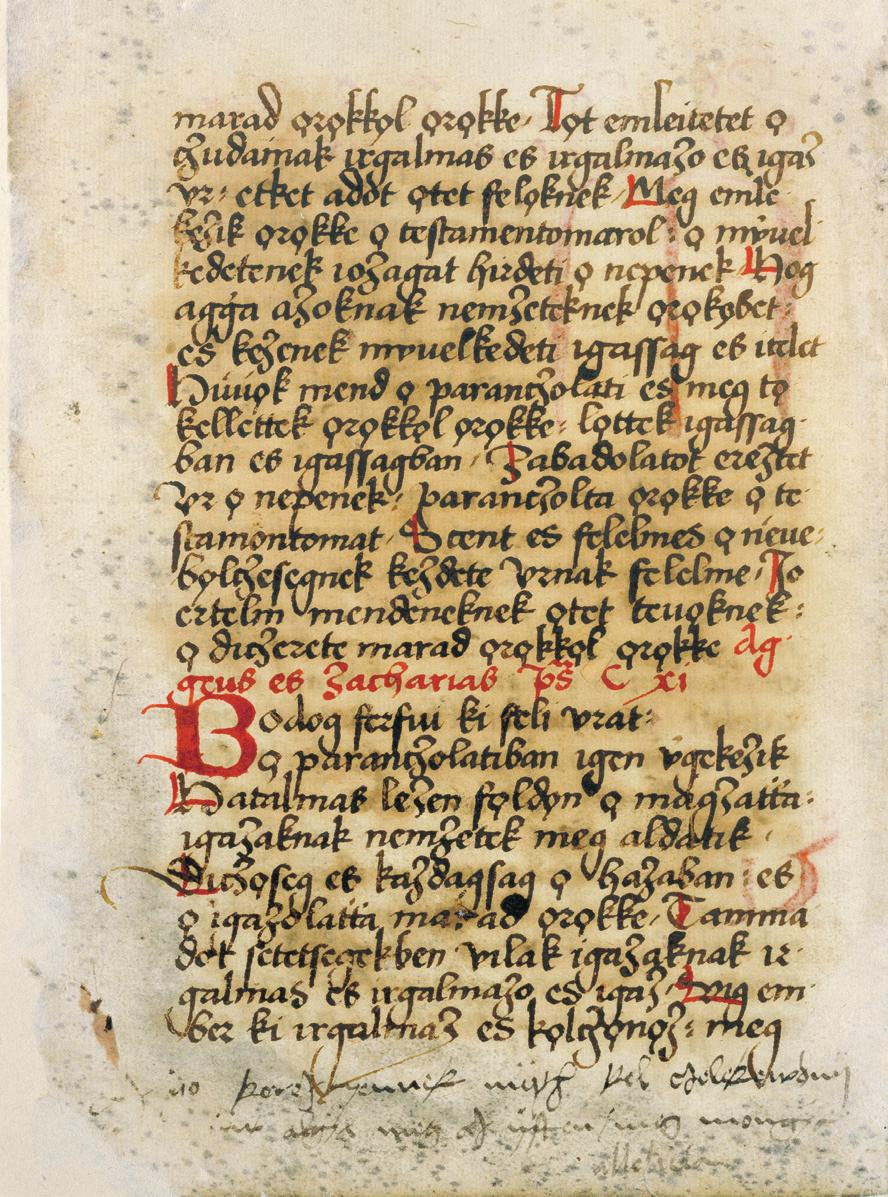 marad ọrọkkọl ọrọkke· Tọt emleitetet ọ
čʒudainak irgalmas es irgalmaʒo es igaʒ
vr: etket addot ọtet felọknek· Meg emle
keʒik ọrọkke ọ testamentomarol: ọ mÿuel
kedetenek ioʒagat hirdeti ọ nepenek Hog
agga aʒoknak nemʒeteknek ọrọkọbet:
es keʒenek mÿuelkedeti igassag es itelet
Hiuuọk mend ọ parančʒolati es meg tọ
kellettek ọrọkkọl ọrọkke: lọttek igassag
ban es igassagban· Zabadolatot ereʒtet
Vr ọ nepenek: parančʒolta ọrọkke ọ te
stamontomat· Scent es felelmes ọ neue:
bọlčʒesegnek keʒdete Vrnak felelme· Jo
ertelm mendeneknek ọtet teuọknek:
ọ dičʒerete marad ọrọkkọl ọrọkke Ag
geus es Zacharias ps̄ C xi
Bodog ferfiu ki feli vrat:
ọ parančʒolatiban igen vgekeʒik
Hatalmas leʒen fọldọn ọ magʒatta:
igaʒaknak nemʒetek meg aldatik·
Dičʒọseg es kaʒdagsag ọ haʒaban: es
ọ igaʒolatta marad ọrọkke· Tamma
dot setetsegekben vilak igaʒaknak ir
galmas es irgalmaʒo es igaʒ· Vig em
ber ki irgalmaʒ es kọlčʒọnọʒ: meg